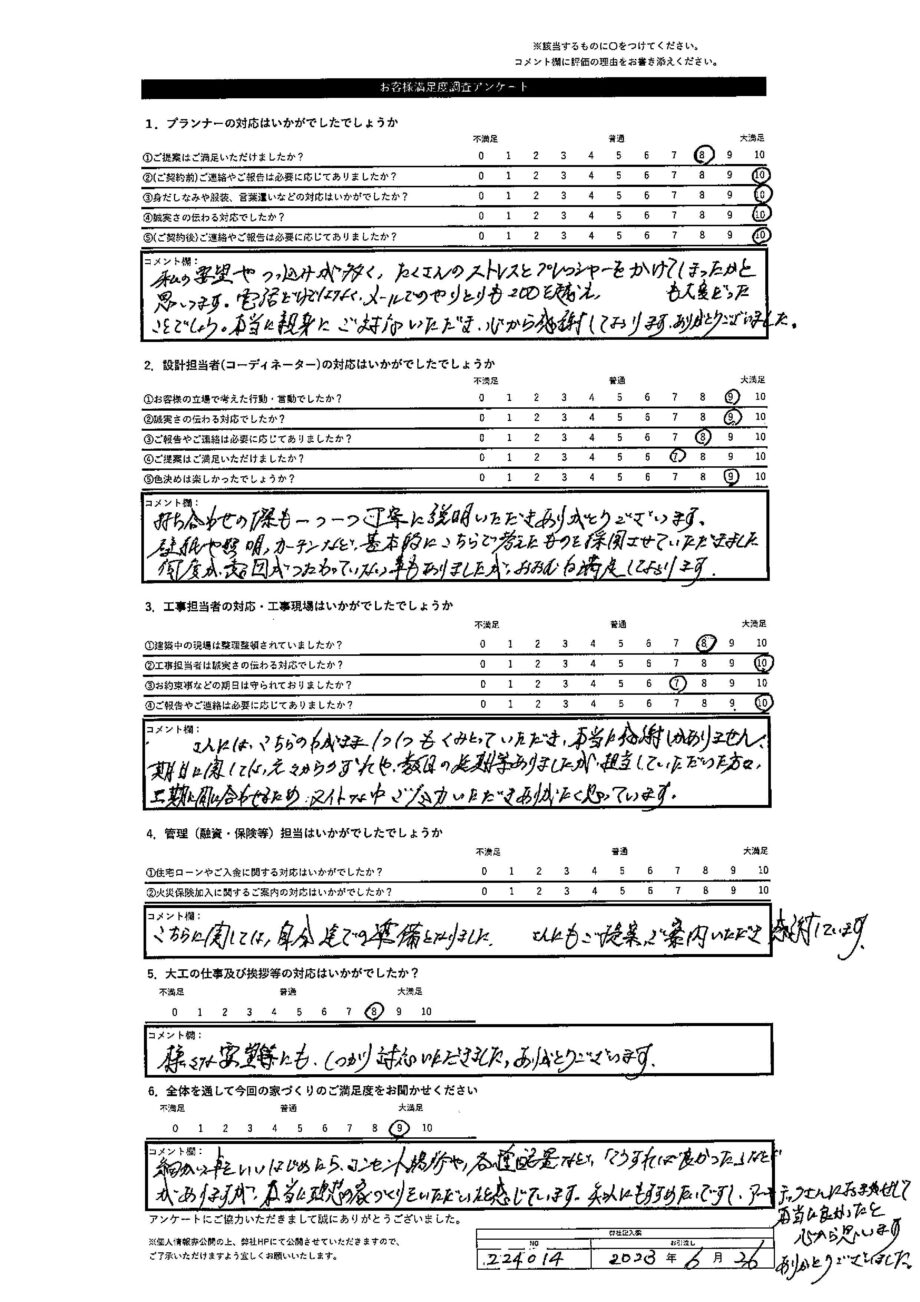 ※該当するものに○をつけてください。
コメント欄に評価の理由をお書き添えください。
お客様満足度調査アンケート
1．プランナーの対応はいかがでしたでしょうか
不満足 普通 大満足
①ご提案はご満足いただけましたか？ 0 1 2 3 4 5 6 7 8 9 10
②(ご契約前)ご連絡やご報告は必要に応じてありましたか？ 0 1 2 3 4 5 6 7 8 9 10
③身だしなみや服装、言葉遣いなどの対応はいかがでしたか？ 0 1 2 3 4 5 6 7 8 9 10
④誠実さの伝わる対応でしたか？ 0 1 2 3 4 5 6 7 8 9 10
⑤(ご契約後)ご連絡やご報告は必要に応じてありましたか？ 0 1 2 3 4 5 6 7 8 9 10
コメント欄：
私の要望やつっ込みが多く、たくさんのストレスとプレッシャーをかけてしまったかと
思います。電話だけではなく、メールでのやりとりも200を超え、 も大変だった
ことでしょう。本当に親身にご対応いただき、心から感謝しております。ありがとうございました。
2．設計担当者(コーディネーター)の対応はいかがでしたでしょうか
不満足 普通 大満足
①お客様の立場で考えた行動・言動でしたか？ 0 1 2 3 4 5 6 7 8 9 10
②誠実さの伝わる対応でしたか？ 0 1 2 3 4 5 6 7 8 9 10
③ご報告やご連絡は必要に応じてありましたか？ 0 1 2 3 4 5 6 7 8 9 10
④ご提案はご満足いただけましたか？ 0 1 2 3 4 5 6 7 8 9 10
⑤色決めは楽しかったでしょうか？ 0 1 2 3 4 5 6 7 8 9 10
コメント欄：
打ち合わせの際も一つ一つ丁寧に説明いただきありがとうございます。
壁紙や照明、カーテンなど、基本的にこちらで考えたものを採用させていただきました
何度か意図がつたわっていない事もありましたが、おおむね満足しております。
3．工事担当者の対応・工事現場はいかがでしたでしょうか
不満足 普通 大満足
①建築中の現場は整理整頓されていましたか？ 0 1 2 3 4 5 6 7 8 9 10
②工事担当者は誠実さの伝わる対応でしたか？ 0 1 2 3 4 5 6 7 8 9 10
③お約束事などの期日は守られておりましたか？ 0 1 2 3 4 5 6 7 8 9 10
④ご報告やご連絡は必要に応じてありましたか？ 0 1 2 3 4 5 6 7 8 9 10
コメント欄：
さんには、こちらのわがまま1つ1つもくみとっていただき、本当に感謝しかありません。
期日に関しては、元々からのずれや、数日の延期等ありましたが、担当していただいた方々、
工期に間に合わせるため、タイトな中ご尽力いただきありがたく思っています。
4．管理（融資・保険等）担当はいかがでしたでしょうか
不満足 普通 大満足
①住宅ローンやご入金に関する対応はいかがでしたか？ 0 1 2 3 4 5 6 7 8 9 10
②火災保険加入に関するご案内の対応はいかがでしたか？ 0 1 2 3 4 5 6 7 8 9 10
コメント欄：
こちらに関しては、自分達での準備となりました。 さんにもご提案、ご案内いただき感謝しています。
5．大工の仕事及び挨拶等の対応はいかがでしたか？
不満足 普通 大満足
0 1 2 3 4 5 6 7 8 9 10
コメント欄：
様々な要望等にも、しっかり対応いただきました。ありがとうございます。
6．全体を通して今回の家づくりのご満足度をお聞かせください
不満足 普通 大満足
0 1 2 3 4 5 6 7 8 9 10
コメント欄：
細かい事をいいはじめたら、コンセント場所や、各種配置など、「こうすれば良かった」など
がありますが、本当に理想の家づくりをいただいたと感じています。友人にもすすめたいですし、アーキテックさんにおまかせして
本当に良かったと
心から思います
ありがとうございました。
アンケートにご協力いただきまして誠にありがとうございました。
※個人情報非公開の上、弊社HPにて公開させていただきますので、
ご了承いただけますよう宜しくお願いいたします。
弊社記入欄
NO お引渡し
224014 2023 年 6 月 26